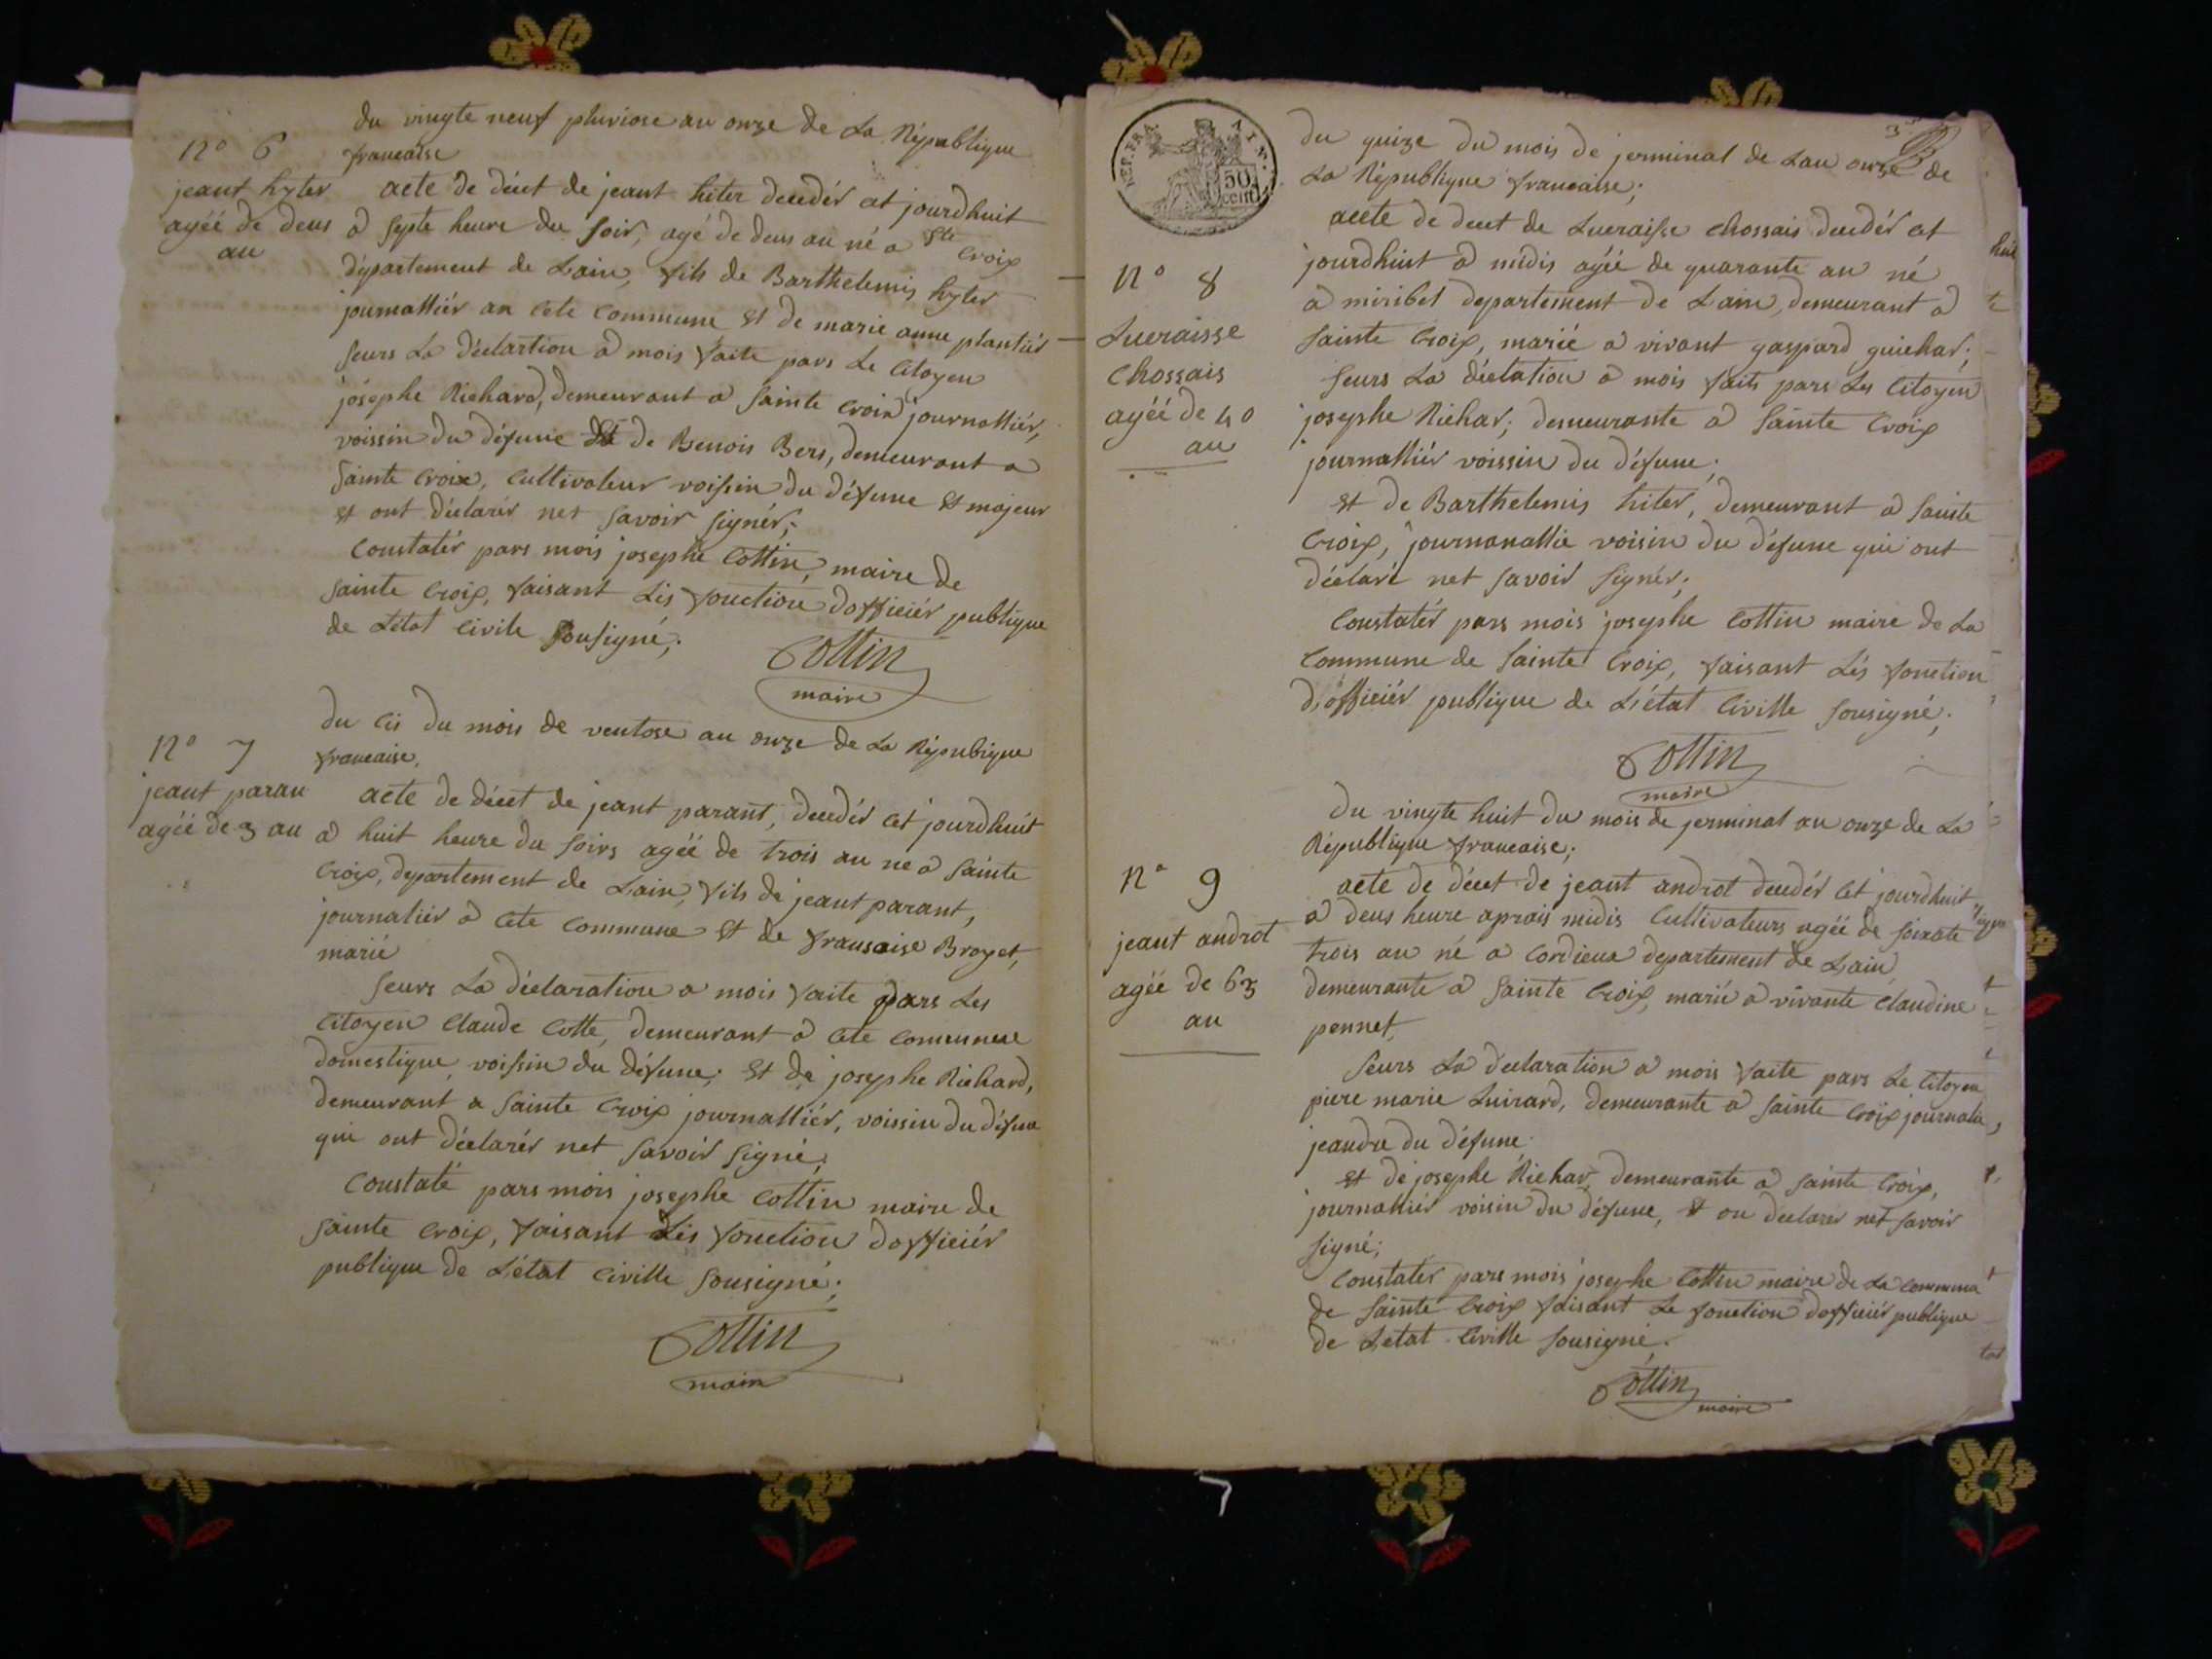 du vingte neuf pluviose an onze de La République
francaise
n° 6
jeant hyter
agéé de deus
an
acte de décet de jeant hiter décédér cet jourdhuit
a septe heure du soir, agé de deus an né a Ste Croix
département de Lain, fils de Barthelemis hyter
journalliér an cete commune et de marie anne plantiér
seurs La déclartion a mois faite pars Le Citoyen
jósephe Richard, demeurant a sainte Croix journalliér,
voissin du défunc et de Benois Bers, demeurant a
Sainte Croix, Cultivateur voissin du défunc et majeur
et ont déclarér net savoir signér;
Constatér pars mois josephe Cottin, maire de
sainte Croix, faisant Lis fonction dofficiér publique
de Létat Civile sousigné;
Cottin
maire
du cis du mois de ventose an onze de La Républque
francaise,
n° 7
jeant paran
agéé de 3 an
acte de décet de jeant parant, décédér cet jourdhuit
a huit heure du soirs agéé de trois an ne a Sainte
Croix, département de Lain, fils de jeant parant,
journaliér a cete commune et de fransaise Broyet,
marié
seurs La déclaration a mois faite pars Les
Citoyen Claude Cotte, demeurant a cete commune
domestique voissin du défunc; et de josephe Richard,
demeurant a Sainte Croix journalliér, voissin du défunc
qui ont déclarér net savoir signé;
Constaté pars mois josephe Cottin maire de
sainte Croix, faisant Lis fonction dofficiér
publique de Létat Civille sousigné;
Cottin
maire
REP. FRA.
50
cent.
du quize du mois de jerminal de Lan onze de
La République francaise;
n° 8
Lueraisse
Chossais
agéé de 40
an
acete de decet de Lueraisse Chossais décédér cet
jourdhuit a midis agéé de quarante an né
a miribel departement de Lain, demeurant a
sainte Croix, marié a vivant gaspard guichar;
seurs La déclation a mois faits pars Les Citoyen
josephe Richar; demeurante a Sainte Croix
journalliér voissin du défunc;
et de Barthelemis hiter, demeurant a Sainte
Croix, journanallie voisin du défunc qui ont
déclaré net savoir signér;
Constatér pars mois josephe Cottin maire de La
Commune de Sainte Croix, faisant Lés fonction
d'officiér publique de L'état Civille sousigné;
Cottin
maire
du vingte huit du mois de jerminal an onze de La
République francaise;
n° 9
jeant androt
agéé de 63
an
acte de décet de jeant androt décédér cet jourdhuit
a deus heure aprais midis Cultivateurs agéé de soixate
trois an né a Cordieux departement de Lain
demeurante a Sainte Croix, marié a vivante Claudine
pennet,
Seurs La declaration a mois faite pars Le Citoyen
piere marie Luirard, demeurante a Sainte Croix journalie,
jeandre du défunc;
et de josephe Richar, demeurante a sainte Croix,
journalliér voisin du défunc, et on declarer net savoir
signé;
Constatér pars mois josephe Cottin maire de La commune
de Sainte Croix faisant Le fonction dofficiér publique
de Letat Civille sousigné.
Cottin
maire